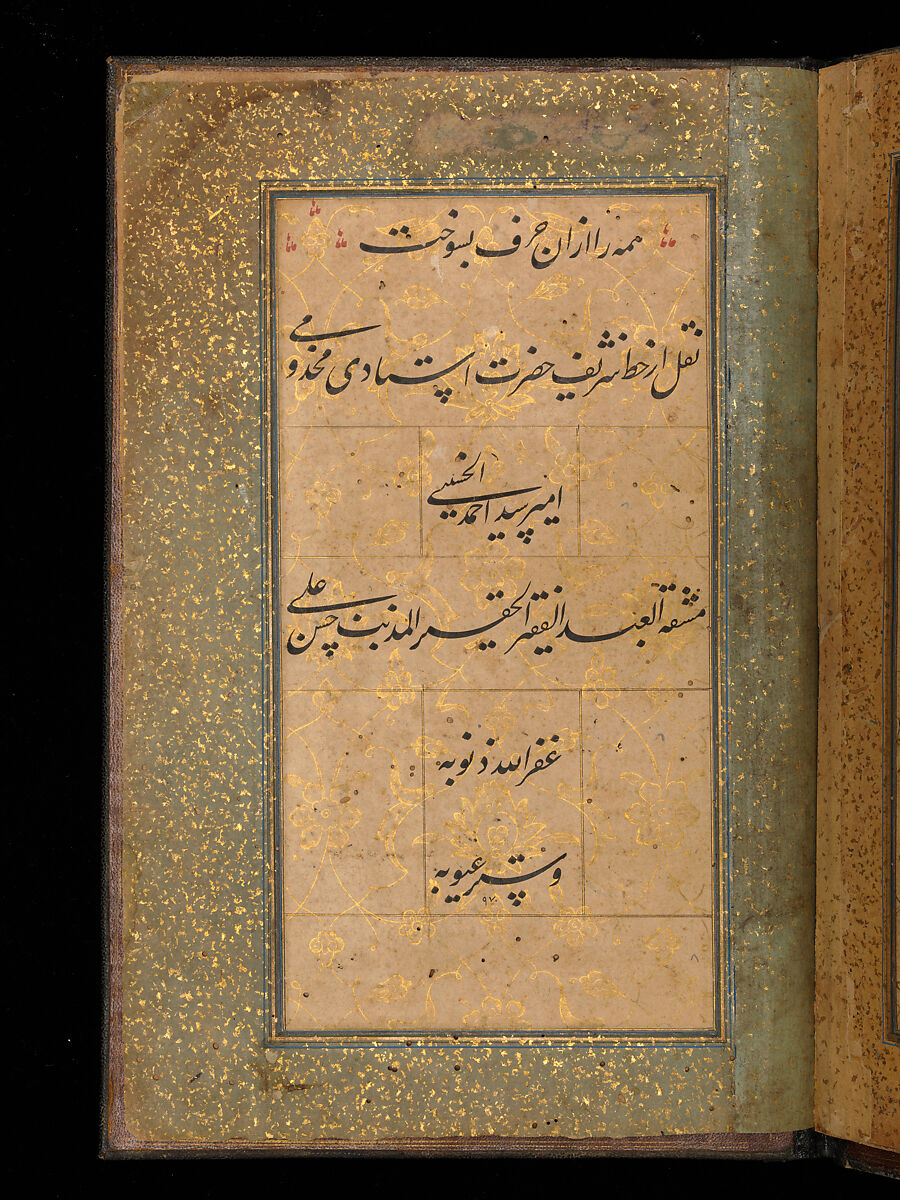 همه را ازان حرف بسوخت
نقل از خط شریف حضرت استادی مخدومی
امیر سید احمد الحسینی
مشقه العبد الفقیر الحقیر المذنب حسن علی
غفر الله ذنوبه
و ستر عیوبه